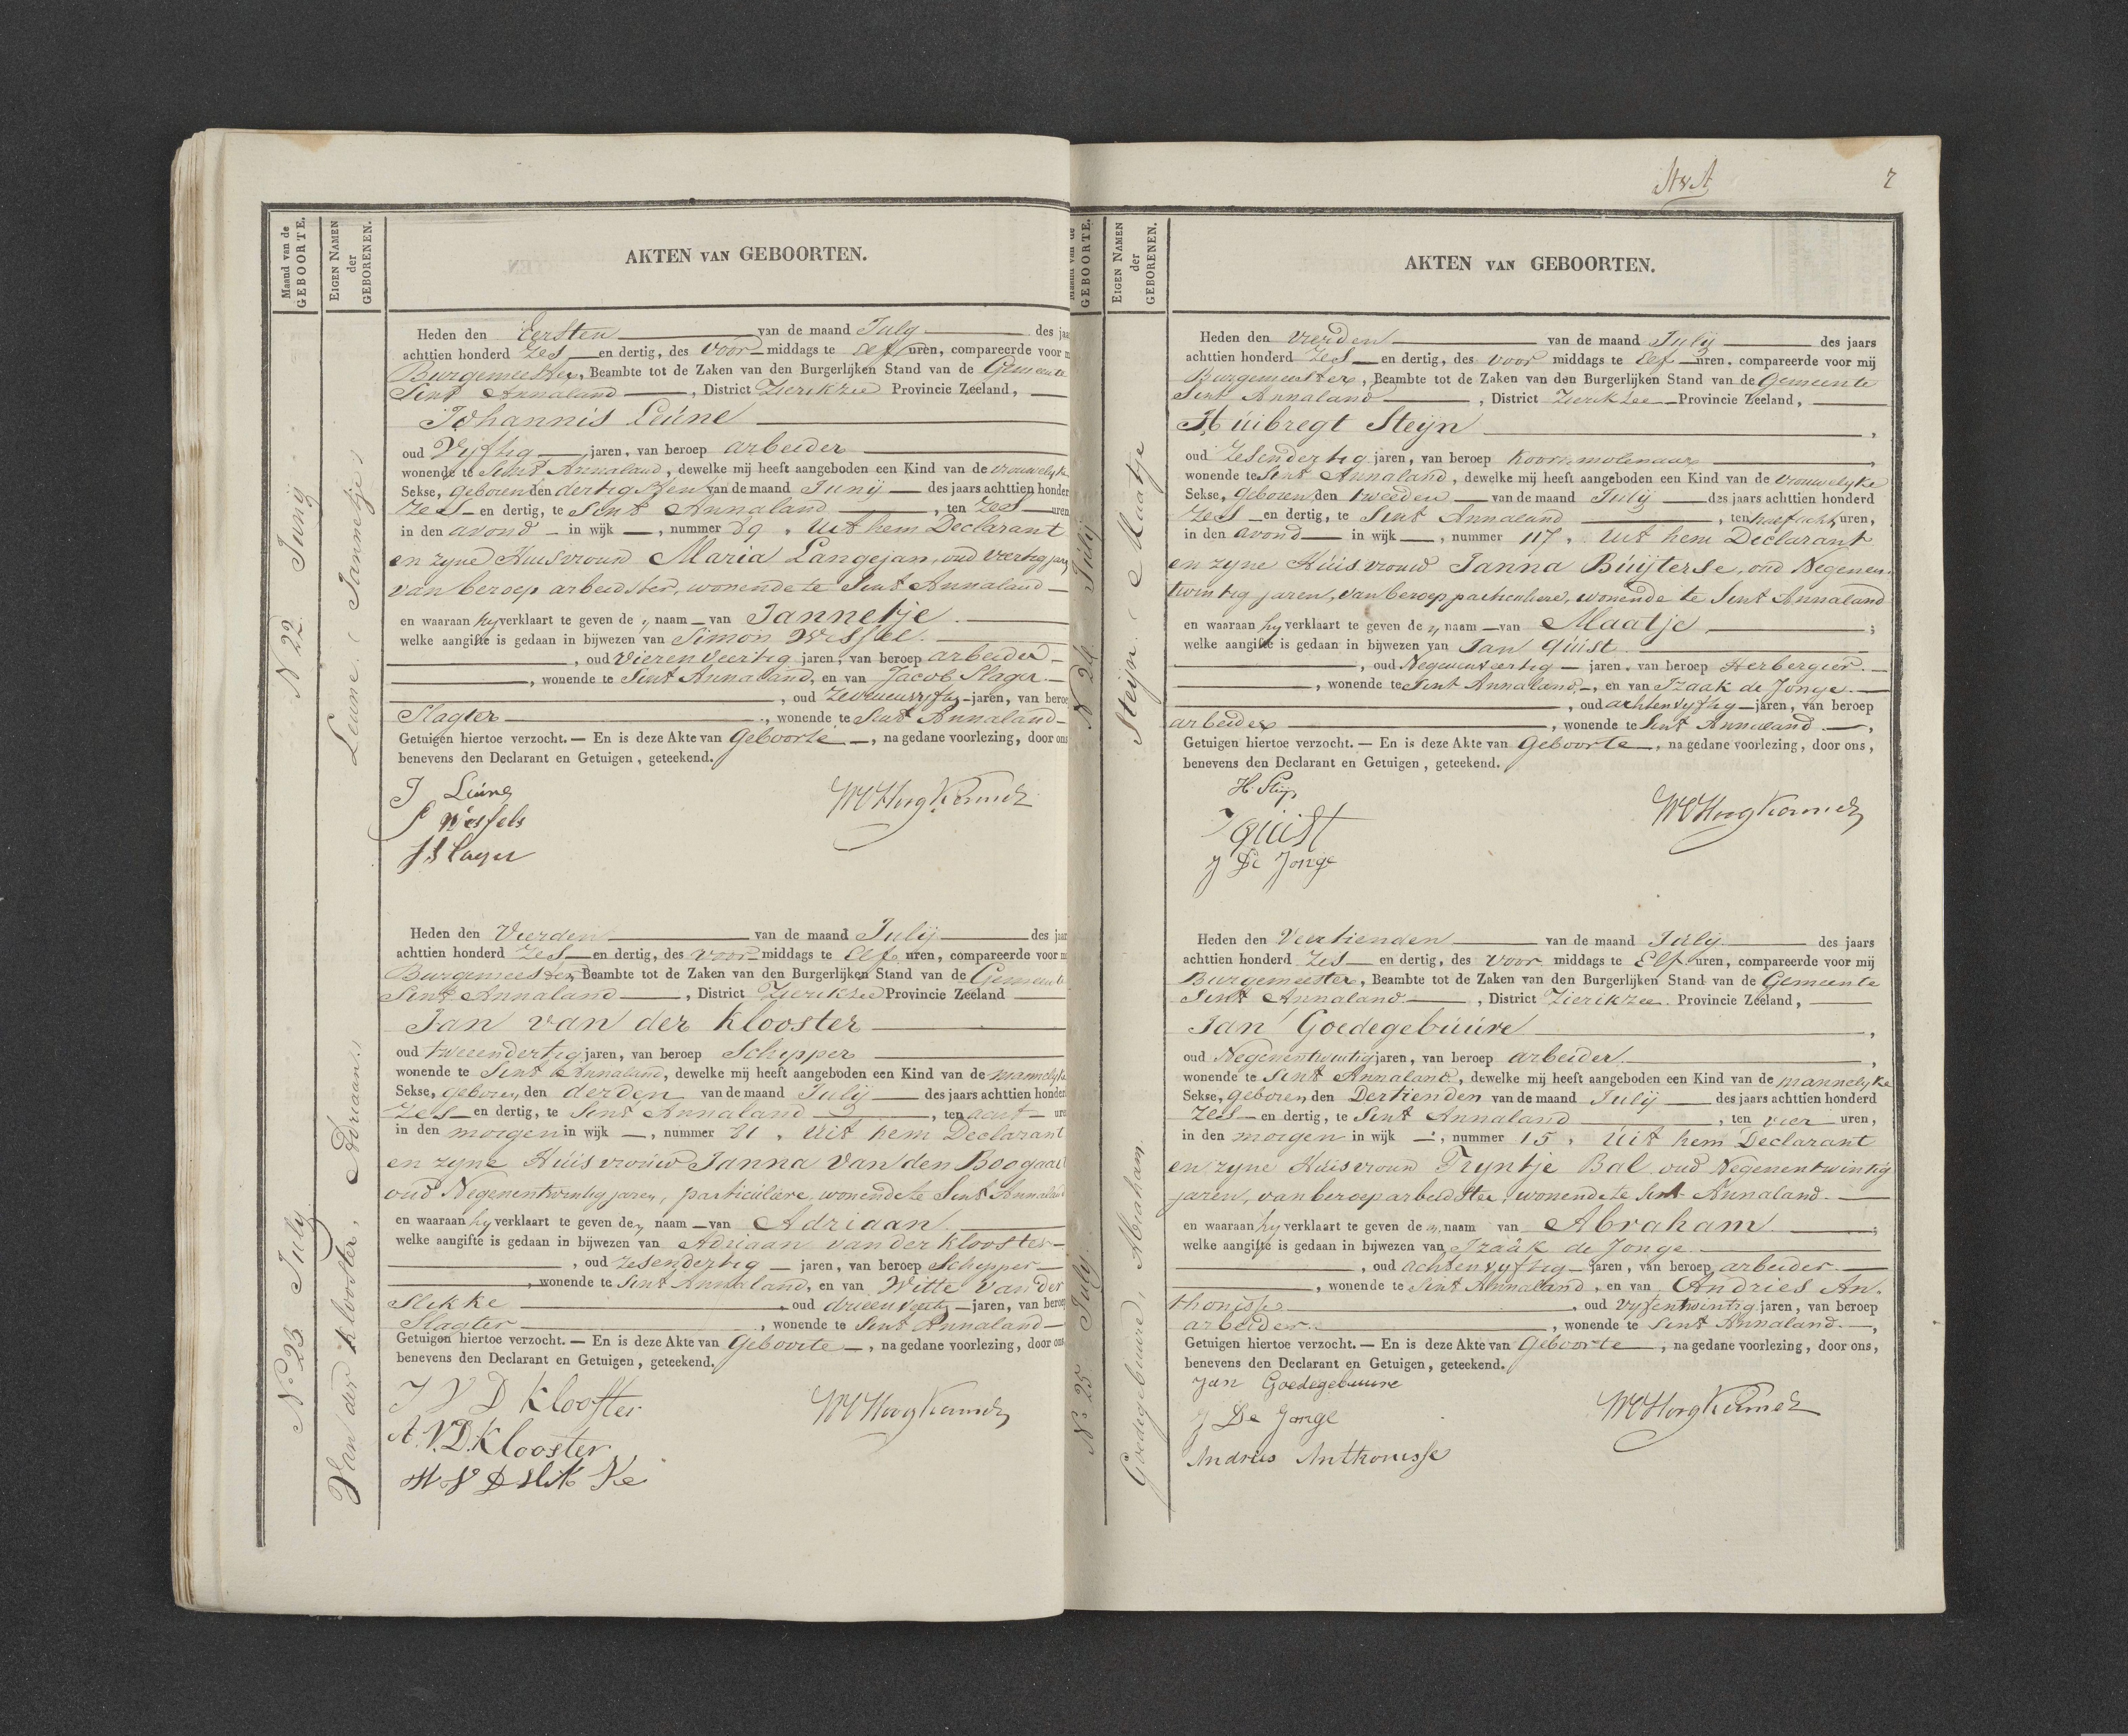 Maand van de
GEBOORTE.
EIGEN NAMEN
der
GEBORENEN.
AKTEN VAN GEBOORTEN.
N 22. Junij
Leune, Jannetje
Heden den Eersten van de maand July des jaa
achttien honderd Zes en dertig, des Voor middags te elf uren, compareerde voor m
Burgemeester, Beambte tot de Zaken van den Burgerlijken Stand van de Gemeente
Sint Annaland, District Zierikzee Provincie Zeeland,
Johannis Leúne
oud Vijftig jaren, van beroep arbeider
wonende te Sint Annaland, dewelke mij heeft aangeboden een Kind van de vrouwelyke
Sekse, geboren den dertigsten van de maand Junij des jaars achttien honder
Zes en dertig, te Sint Annaland, ten Zes uren
in den avond in wijk —, nummer 89. Uit hem Declarant
en zyne Huisvrouw Maria Langejan, oud veertig jaren
van beroep arbeidster, wonende te Sint Annaland
en waaraan hy verklaart te geven de naam van Jannetje
welke aangifte is gedaan in bijwezen van Simon Wessels
, oud vierenveertig jaren, van beroep arbeider
, wonende te Sint Annaland, en van Jacob Slager
, oud zevenenvyftig jaren, van beroe
Slagter, wonende te Sint Annaland
Getuigen hiertoe verzocht. — En is deze Akte van Geboorte, na gedane voorlezing, door ons
benevens den Declarant en Getuigen, geteekend.
J Leúne
S Wessels
J Slager
N 23 July
Van der Klooster, Adriaan
Heden den Vierden van de maand Julij des jaar
achttien honderd Zes en dertig, des voor middags te Elf uren, compareerde voor m
Burgemeester, Beambte tot de Zaken van den Burgerlijken Stand van de Gemeente
Sint Annaland, District Zierikzee Provincie Zeeland
Jan van der Klooster
oud tweeendertig jaren, van beroep Schipper
wonende te Sint Annaland, dewelke mij heeft aangeboden een Kind van de mannelyke
Sekse, geboren den derden van de maand Julij des jaars achttien honder
Zes en dertig, te Sint Annaland, ten acht ure
in den morgen in wijk —, nummer 81. Uit hem Declarant
en zyne Húisvroúw Janna Van den Boogaart
oud Negenentwintig jaren, particuliere, wonende te Sint Annaland
en waaraan hy verklaart te geven de naam van Adriaan.
welke aangifte is gedaan in bijwezen van Adriaan van der Klooster
, oud zesendertig jaren, van beroep Schipper
, wonende te Sint Annaland, en van Witte Van der
Slikke, oud drieenveertig jaren, van beroep
Slagter, wonende te Sint Annaland
Getuigen hiertoe verzocht. — En is deze Akte van Geboorte, na gedane voorlezing, door ons
benevens den Declarant en Getuigen, geteekend.
J V D Klooster
A. V. D. Klooster
W V D Slikke
St v A
7
GEBOORTE.
EIGEN NAMEN
der
GEBORENEN.
AKTEN VAN GEBOORTEN.
N 24. Julij
Steijn, Maatje
Heden den Vierden van de maand Julij des jaars
achttien honderd Zes en dertig, des voor middags te Elf uren, compareerde voor mij
Burgemeester, Beambte tot de Zaken van den Burgerlijken Stand van de Gemeente
Sint Annaland, District Zierikzee Provincie Zeeland,
Húibregt Steijn
oud Zesendertig jaren, van beroep Koornmolenaar
wonende te Sint Annaland, dewelke mij heeft aangeboden een Kind van de vrouwelyke
Sekse, geboren den tweeden van de maand Julij des jaars achttien honderd
Zes en dertig, te Sint Annaland, ten half acht uren,
in den avond in wijk —, nummer 117. Uit hem Declarant
en zyne Húisvrouw Janna Búijterse, oud Negenen
twintig jaren, van beroep particuliere, wonende te Sint Annaland
en waaraan hy verklaart te geven de naam van Maatje;
welke aangifte is gedaan in bijwezen van Jan Qúist.
, oud Negenenveertig jaren, van beroep Herbergier.
, wonende te Sint Annaland, en van Izaak de Jonge
, oud achtenvyftig jaren, van beroep
arbeider, wonende te Sint Annaland,
Getuigen hiertoe verzocht. — En is deze Akte van Geboorte, na gedane voorlezing, door ons,
benevens den Declarant en Getuigen, geteekend.
J Qúist
J De Jonge
N 25 July
Goedegebuure, Abraham
Heden den Veertienden van de maand Július des jaars
achttien honderd Zes en dertig, des voor middags te Elf uren, compareerde voor mij
Burgemeester, Beambte tot de Zaken van den Burgerlijken Stand van de Gemeente
Sint Annaland, District Zierikzee. Provincie Zeeland,
Jan Goedegebúúre
oud Negenentwintig jaren, van beroep arbeider
wonende te Sint Annaland, dewelke mij heeft aangeboden een Kind van de mannelyke
Sekse, geboren den Dertienden van de maand Julij des jaars achttien honderd
Zes en dertig, te Sint Annaland, ten vier uren,
in den morgen in wijk —, nummer 15. Uit hem Declarant
en zyne Húisvrouw Tryntje Bal oud Negenentwintig
jaren, van beroep arbeidster, wonende te Sint Annaland.
en waaraan hy verklaart te geven de naam van Abraham;
welke aangifte is gedaan in bijwezen van Izaäk de Jonge
, oud achtenvyftig jaren, van beroep arbeider.
, wonende te Sint Annaland, en van Andries An
thonisse, oud vyfentwintig jaren, van beroep
arbeider, wonende te Sint Annaland.,
Getuigen hiertoe verzocht. — En is deze Akte van Geboorte, na gedane voorlezing, door ons,
benevens den Declarant en Getuigen, geteekend.
Jan Goedegebuure
J De Jonge
Andries Anthonisse